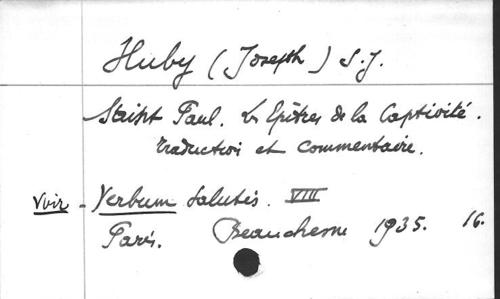 Huby (Joseph) S.J.
Saint Paul. Les Epîtres de la Captivité.
traduction et commentaire.
Voir - Verbum Salutis. VIII
Paris. Beauchesne 1935. 16.